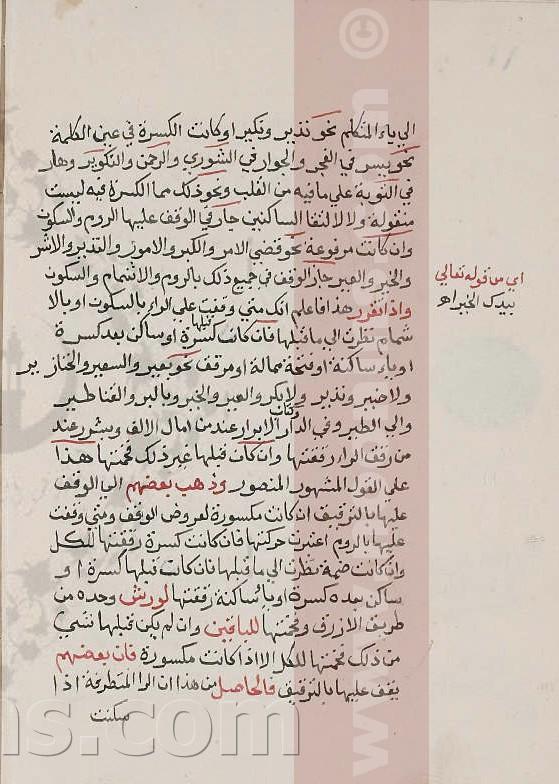 الي ياء المتكلم نحو نذير ونكير او كانت الكسرة في عين الكلمة
نحو يسر في الفجر والجوار في الشوري والرحمن والتكوير وهار
في التوبة علي ما فيه من القلب ونحو ذلك مما الكسرة فيه ليست
منقولة ولا لالتقا الساكنين جاز في الوقف عليها الروم والسكون
وان كانت مرفوعة نحو قضي الامر والكبر والامور والنذر والاشر
والخير والعير جاز الوقف في جميع ذلك بالروم والاشمام والسكون
واذا تقرر هذا فاعلم انك متي وقفت علي الراء بالسكون او بالا
شمام نظرت الي ما قبلها فان كان قبلها كسرة او ساكن بعد كسرة
او ياء ساكنة او فتحة ممالة او مرقق نحو بعير والسعير والخنازير
ولا ضير ونذير ولا بكر والعير والخير وبالبر والقناطير
والي الطير وفي الدار وكتاب الابرار عند من امال الالف وبشرر عند
من رقق الراء رققتها وان كان قبلها غير ذلك فخمتها هذا
علي القول المشهور المنصور وذهب بعضهم الي الوقف
عليها بالترقيق ان كانت مكسورة لعروض الوقف ومتي وقفت
عليها بالروم اعتبرت حركتها فان كانت كسرة رققتها للكل
وان كانت ضمة نظرت الي ما قبلها فان كانت قبلها كسرة او
ساكن بعده كسرة او ياء ساكنة رققتها لورش وحده من
طريق الازرق وفخمتها للباقين وان لم يكن قبلها شي
من ذلك فخمتها للكل الا اذا كانت مكسورة فان بعضهم
يقف عليها بالترقيق فالحاصل من هذا ان الراء المتطرفة اذا
سكنت
اي من قوله تعالي
بيدك الخير اه
www
ns.com
©